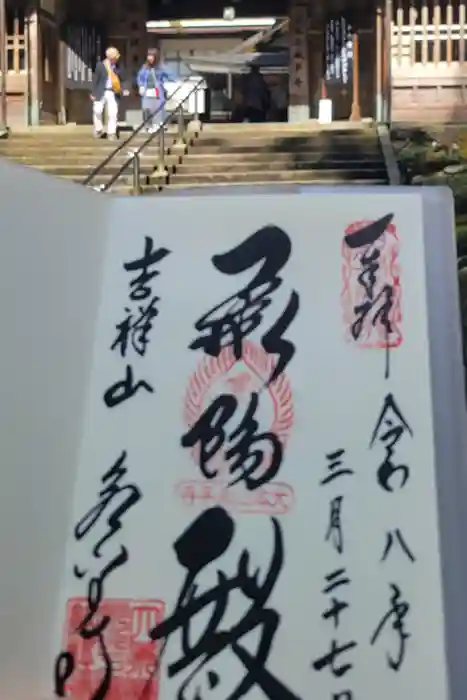 奉拝
令和八年
三月二十七日
承陽殿
吉祥山
永平寺